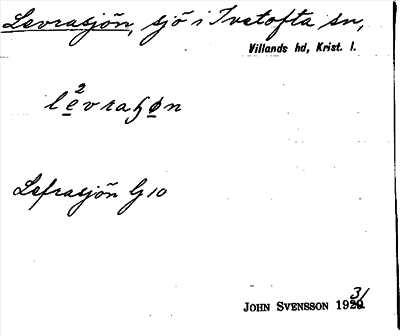 Levrasjön, sjö i Ivetofta sn,
Villands hd, Krist. l.
lèvraɧøn
Lefrasjön G10
JOHN SVENSSON 1931